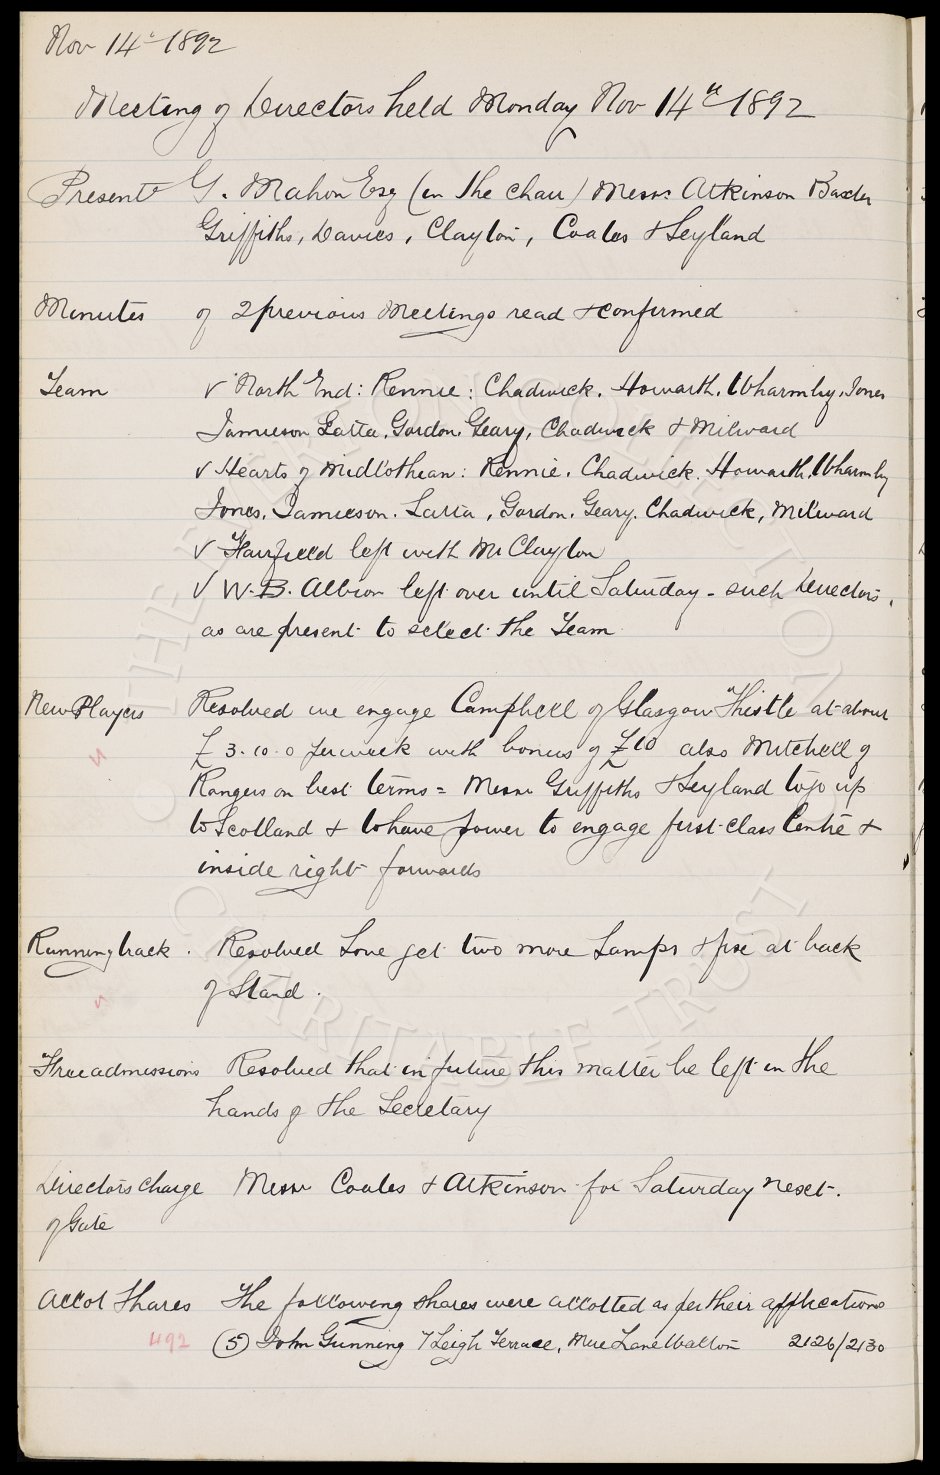 Nov 14th 1892
Meeting of Directors held Monday Nov 14th 1892
Present G. Mahon Esq (in the chair) Messrs Atkinson Baxter
Griffiths, Davies, Clayton, Coates & Leyland
Minutes of 2 previous Meetings read & confirmed
Team √ North End: Rennie: Chadwick. Howarth. Wharmby. Jones
Jamieson Latta. Gordon. Geary. Chadwick & Milward
√ Hearts of Midlothian: Rennie. Chadwick. Howarth. Wharmby
Jones. Jamieson. Latta, Gordon. Geary. Chadwick, Milward
√ Fairfield left with Mr Clayton
√ W. B. Albion left over until Saturday - such Directors
as are present to select the Team
New Players Resolved we engage Campbell of Glasgow Thistle at about
£3.10.0 per week with bonus of £10 also Mitchell of
Rangers on best terms = Messrs Griffiths & Leyland to go up
to Scotland & to have power to engage first class Centre &
inside right forwards
Running track. Resolved Lowe get two more Lamps & fix at back
of Stand.
Free admissions Resolved that in future this matter be left in the
hands of the Secretary
Directors charge Messrs Coates & Atkinson for Saturday next.
of Gate
Allot Shares The following shares were allotted as per their applications
492 (5) John Gunning 7 Leigh Terrace, Mere Lane Walton 2126/2130
THE EVERTON COLLECTION
CHARITABLE TRUST